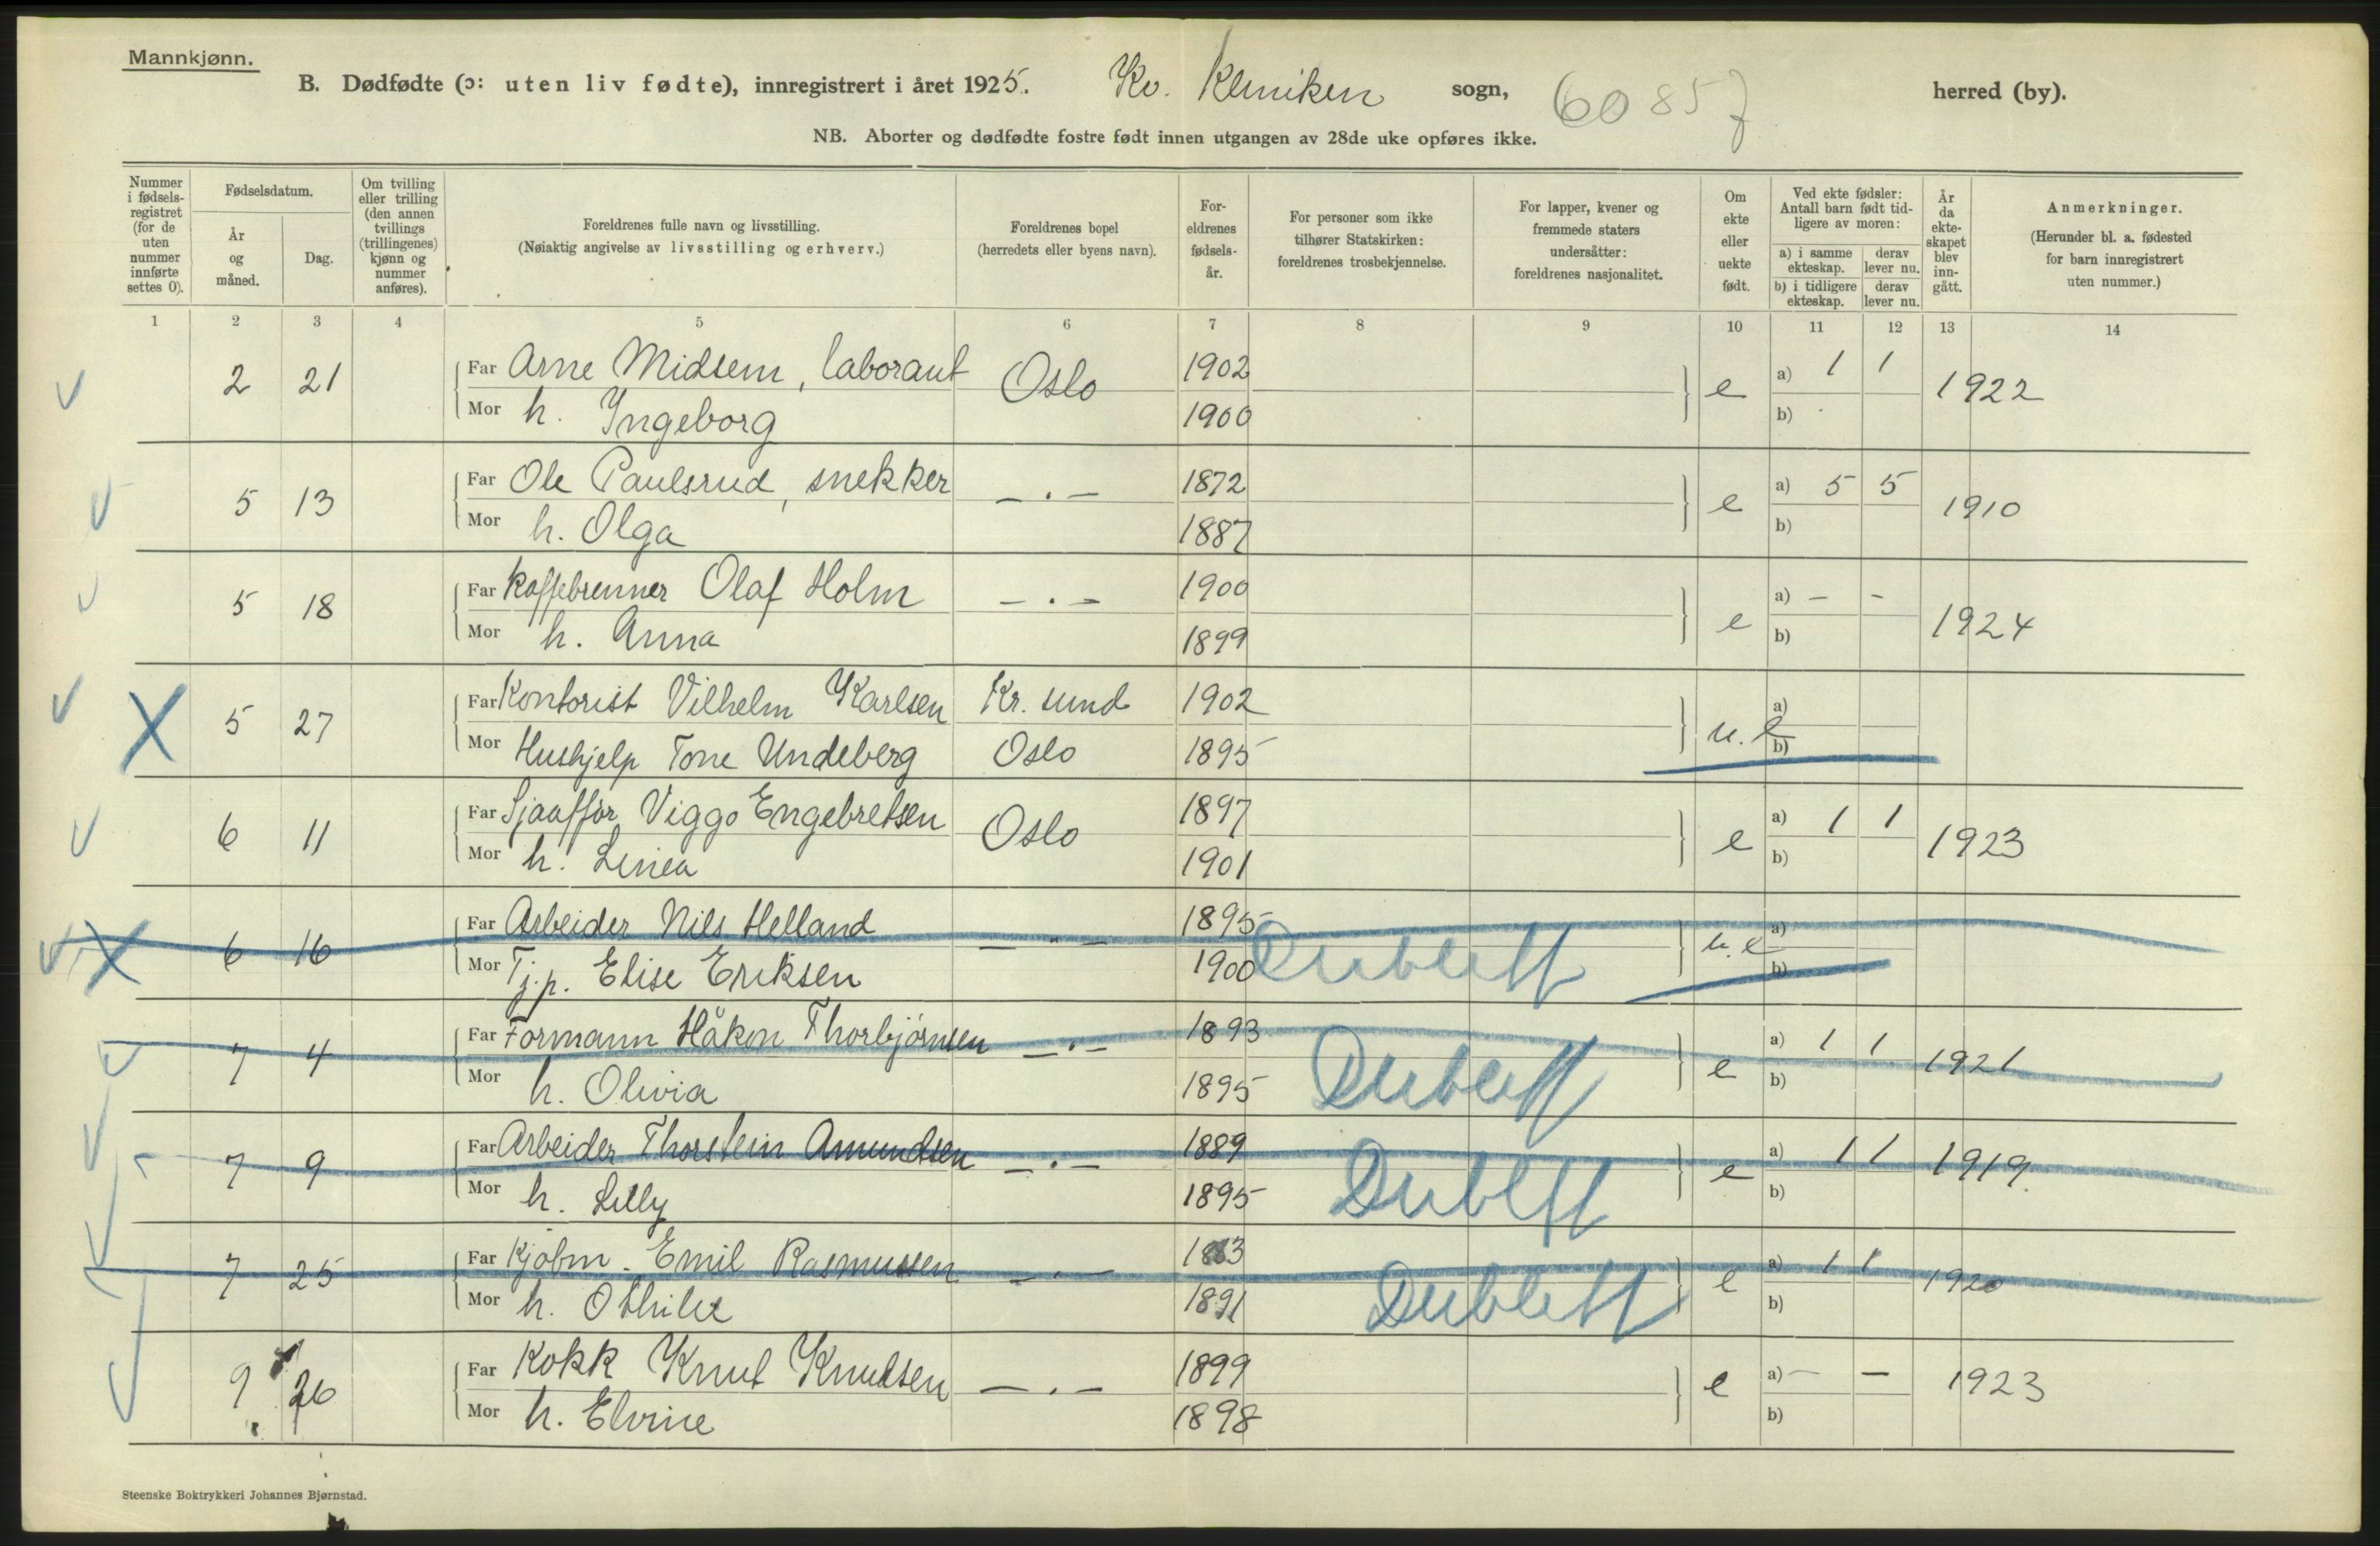 Mannkjønn.
B. Dødfødte (ɔ: uten liv fødte), innregistrert i året 1925. Kv. Kliniken sogn, 60857 herred (by).
NB. Aborter og dødfødte fostre født innen utgangen av 28de uke opføres ikke.
Nummer i fødsels-registret (for de uten nummer innførte settes 0).
Fødselsdatum.
År og måned.
Dag.
Om tvilling eller trilling (den annen tvillings (trillingenes) kjønn og nummer anføres).
Foreldrenes fulle navn og livsstilling.
(Nøiaktig angivelse av livsstilling og erhverv.)
Foreldrenes bopel
(herredets eller byens navn).
For-eldrenes fødsels-år.
For personer som ikke tilhører Statskirken: foreldrenes trosbekjennelse.
For lapper, kvener og fremmede staters undersåtter: foreldrenes nasjonalitet.
Om ekte eller uekte født.
Ved ekte fødsler: Antall barn født tid-ligere av moren:
a) i samme ekteskap. derav lever nu.
b) i tidligere ekteskap. derav lever nu.
År da ekte-skapet blev inn-gått.
Anmerkninger.
(Herunder bl. a. fødested for barn innregistrert uten nummer.)
1 2 3 4 5 6 7 8 9 10 11 12 13 14
2 21 Far Arne Midsem, laborant Oslo 1902 e a) 1 1 1922
Mor h. Ingeborg 1900 b)
5 13 Far Ole Paulsrud, snekker — . — 1872 e a) 5 5 1910
Mor h. Olga 1887 b)
5 18 Far Kaffebrenner Olaf Holm — . — 1900 e a) — - 1924
Mor h. Anna 1899 b)
X 5 27 Far Kontorist Vilhelm Karlsen Kr. sund 1902 u. e a)
Mor Hushjelp Tone Undeberg Oslo 1895 b)
6 11 Far Sjaafför Viggo Engebretsen Oslo 1897 e a) 1 1 1923
Mor h. Linea 1901 b)
X 6 16 Far Arbeider Nils Helland — . — 1895 u. e a)
Mor Tj.p. Elise Eriksen 1900 Dublett b)
7 4 Far Formann Håkon Thorbjörnsen — . — 1893 Dublett e a) 1 1 1921
Mor h. Olivia 1895 b)
7 9 Far Arbeider Thorstein Amundsen — . — 1889 Dublett e a) 1 1 1919.
Mor h. Lilly 1895 b)
7 25 Far Kjøbm. Emil Rasmussen — . — Dublett e a) 1 1 1920
Mor h. Othilie 1891 b)
9 26 Far Kokk Knut Knudsen — . — 1899 e a) — — 1923
Mor h. Elvine 1898 b)
Steenske Boktrykkeri Johannes Bjørnstad.